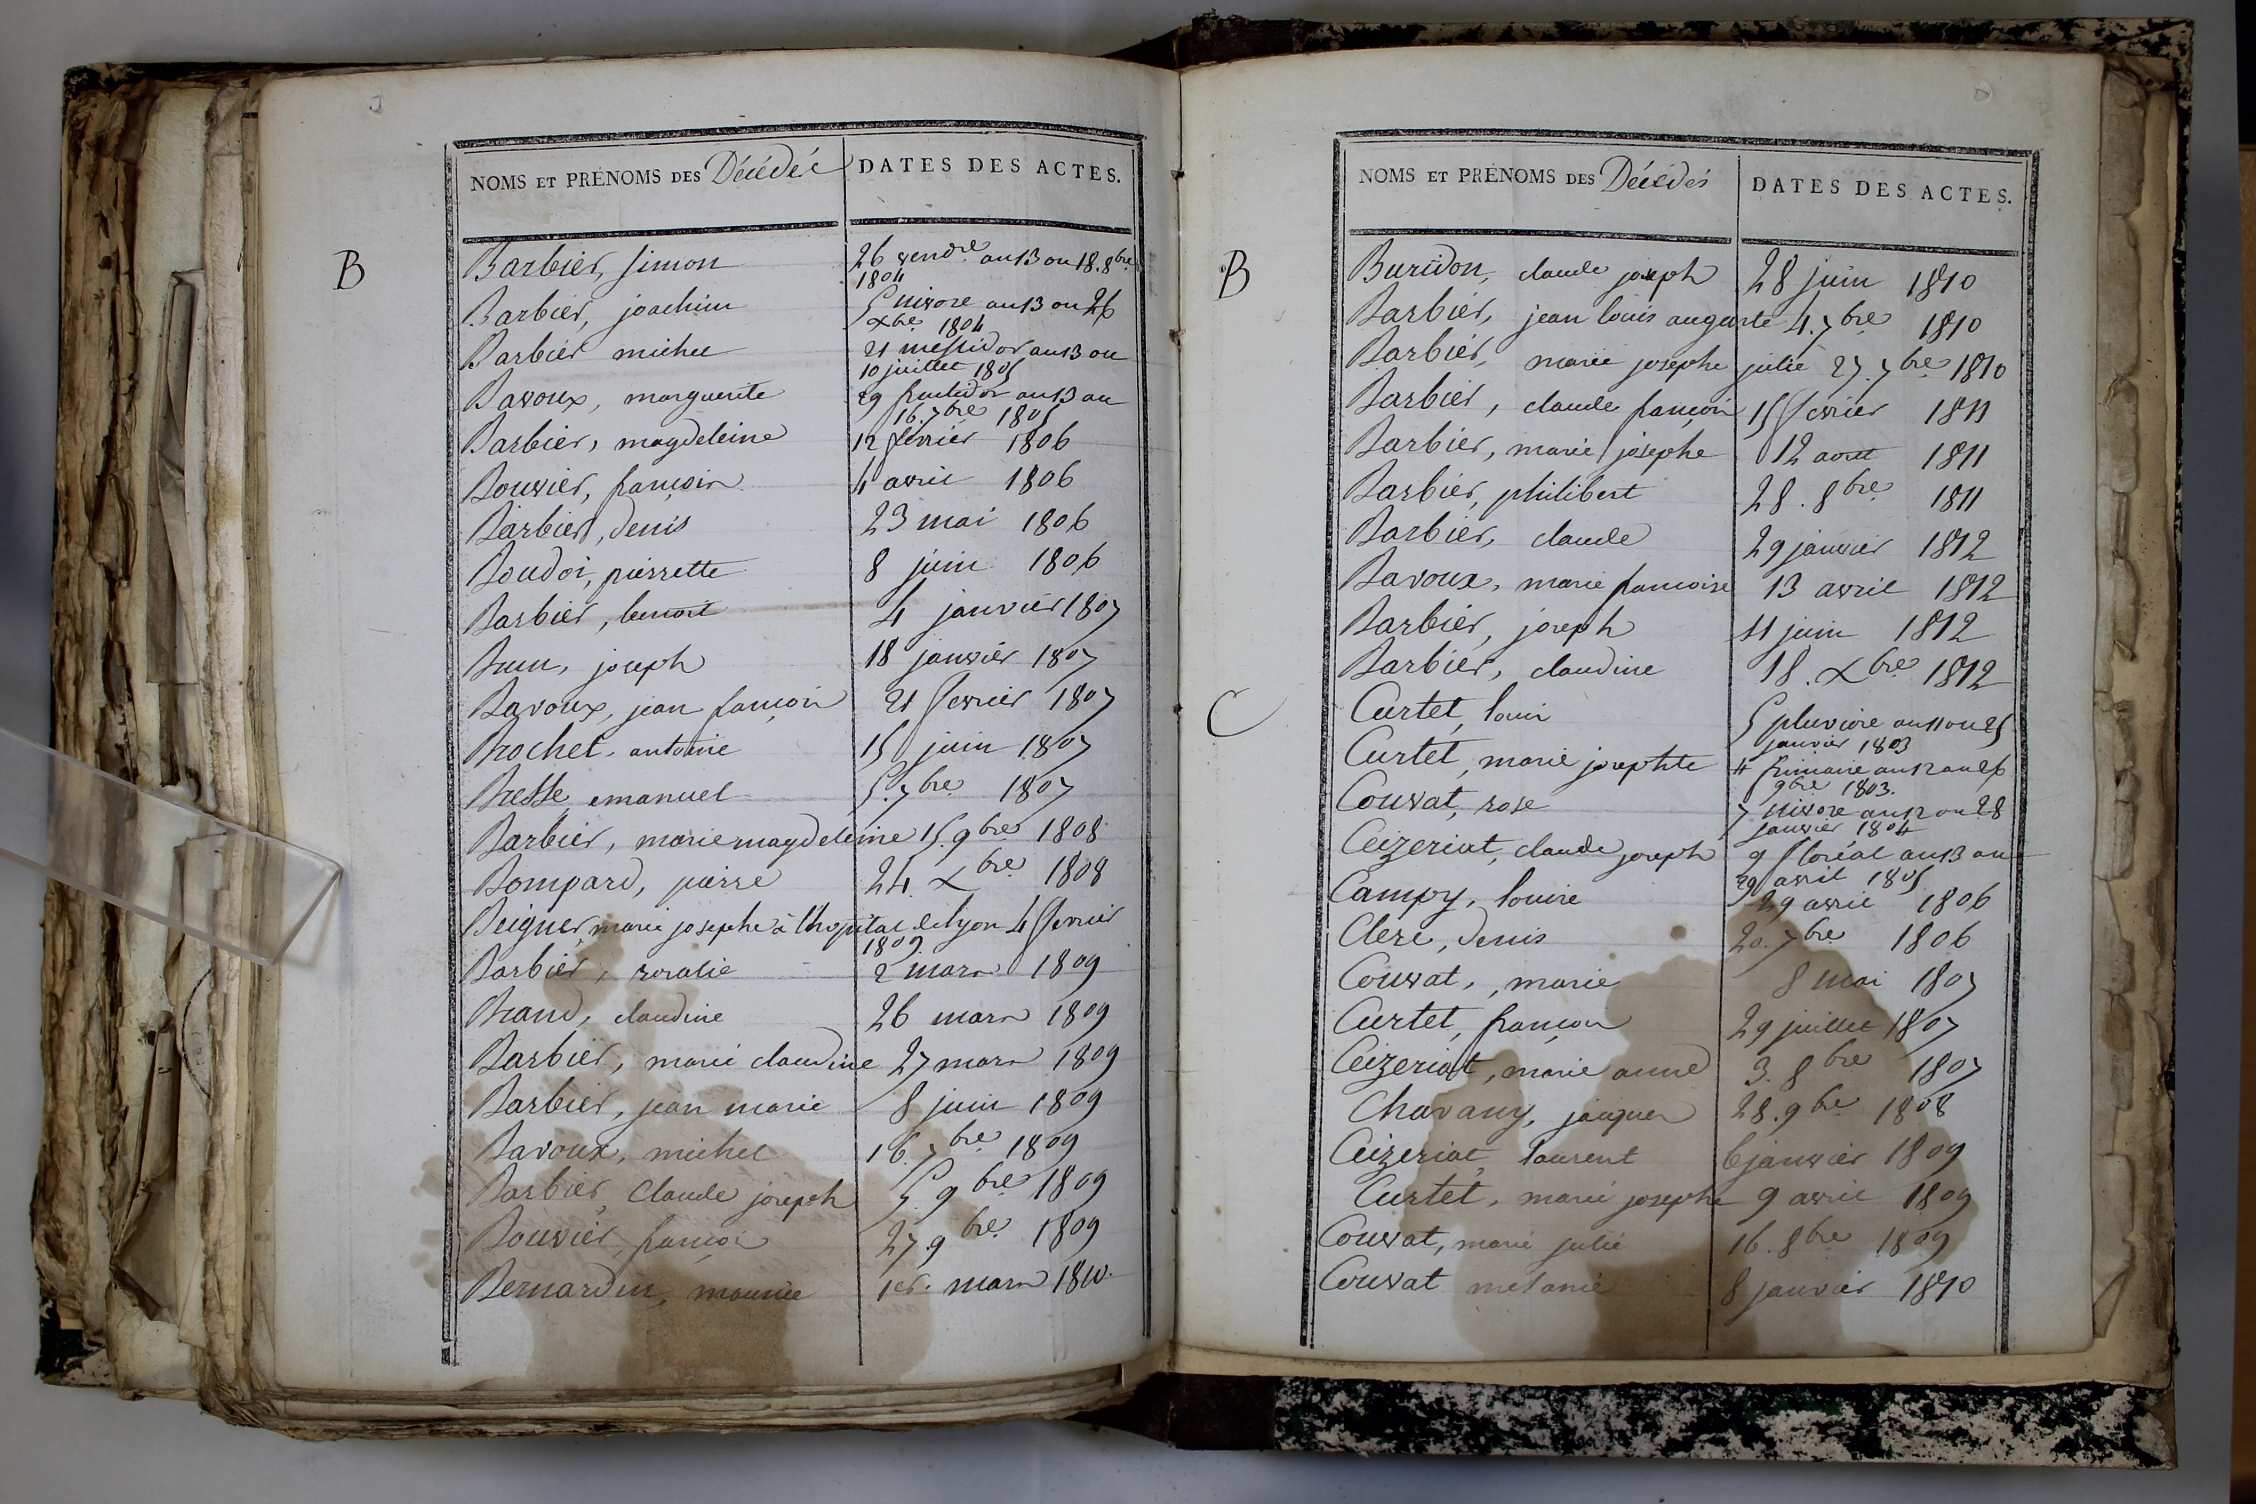 NOMS ET PRÉNOMS DES Décédés DATES DES ACTES.
B
Barbier, simon 26 vend.re an 13 ou 18. 8bre
1804
Barbier, joachim 5 nivose an 13 ou 26
Xbre 1804
Barbier michel 21 messidor an 13 ou
10 juillet 1805
Bavoux, marguerite 29 fructidor an 13 ou
16. 7bre 1805
Barbier, magdeleine 12 février 1806
Bouvier, françois 4 avril 1806
Barbier, denis 23 mai 1806
Boudoi, pierrette 8 juin 1806
Barbier, benoit 4 janvier 1807
Brun, joseph 18 janvier 1807
Bavoux, jean françois 21 fevrier 1807
Brochet, antoine 15 juin 1807
Bresse, emanuel 5. 7bre 1807
Barbier, marie magdeleine 15. 9bre 1808
Bompard, pierre 24. Xbre 1808
Beigner, marie josephe à l'hopital de lyon 4 fevrier
1809
Barbier, rosalie 2 mars 1809
Brand, claudine 26 mars 1809
Barbier, marie claudine 27 mars 1809
Barbier, jean marie 8 juin 1809
Bavoux, michel 16. 7bre 1809
Barbier, Claude joseph 5. 9bre 1809
Bouvier, françois 27. 9bre 1809
Bernardin, 1er. mars 1810.
NOMS ET PRÉNOMS DES Décédés DATES DES ACTES.
B
Buridon, claude joseph 28 juin 1810
Barbier, jean louis auguste 4. 7bre 1810
Barbier, marie josephe julie 27. 7bre 1810
Barbier, claude françois 15 fevrier 1811
Barbier, marie josephe 12 aout 1811
Barbier, philibert 28. 8bre 1811
Barbier, claude 29 janvier 1812
Bavoux, marie françoise 13 avril 1812
Barbier, joseph 11 juin 1812
Barbier, claudine 18. Xbre 1812
C
Curtet, louis 5 pluviose an 11 ou 25
janvier 1803
Curtet, marie josephte 4 frimaire an 12 ou 26
9bre 1803.
Couvat, rose 7 nivose an 12 ou 28
janvier 1804
Ceizeriat, claude joseph 9 floréal an 13 ou
29 avril 1805
Campy, louise 29 avril 1806
Clerc, denis 20. 7bre 1806
Couvat, marie 8 mai 1807
Curtet, françois 29 juillet 1807
Ceizeriat, marie anne 3. 8bre 1807
Chavany, jacques 28. 9bre 1808
Ceizeriat, laurent 6 janvier 1809
Curtet, marie josephe 9 avril 1809
Couvat, marie julie 16. 8bre 1809
Couvat melanie 8 janvier 1810